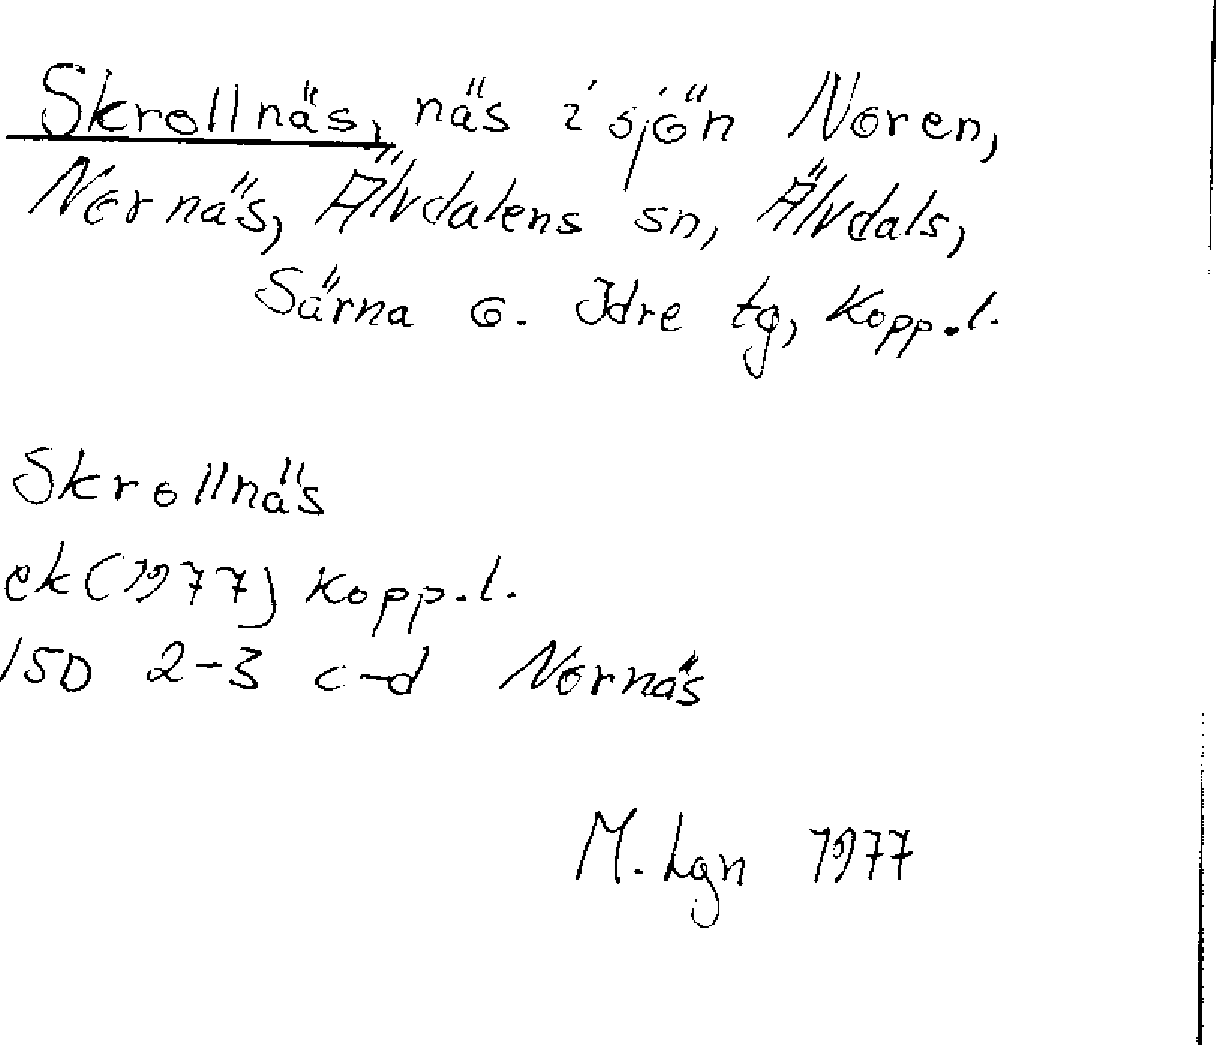 Skrollnäs, näs i sjön Noren,
Nornäs, Älvdalens sn, Älvdals,
Särna o. Idre tg, Kopp.l.
Skrollnäs
ek (1977) Kopp.l.
15D 2-3 c-d Nornäs
M. Lgn 1977